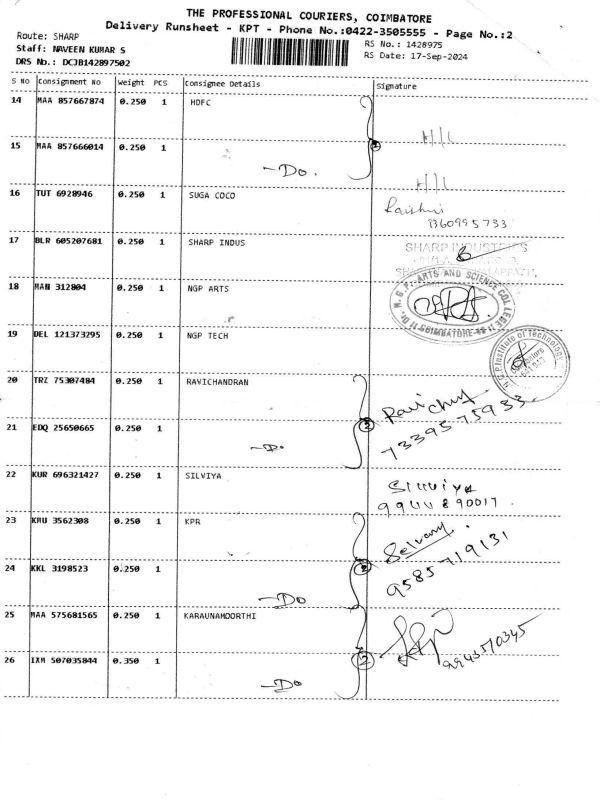 THE PROFESSIONAL COURIERS, COIMBATORE
Delivery Runsheet - KPT - Phone No.:0422-3505555 - Page No.:2
Route: SHARP
RS No.: 1428975
Staff: NAVEEN KUMAR S
RS Date: 17-Sep-2024
DRS No.: DCJB142897502
S No Consignment No Weight PCS Consignee Details Signature
14 MAA 857667874 0.250 1 HDFC
H/L
15 MAA 857666014 0.250 1
-Do. 2
H/L
16 TUT 6928946 0.250 1 SUGA COCO
9360995733
17 BLR 605207681 0.250 1 SHARP INDUS
SHARP INDUSTRIES
18 MAN 312804 0.250 1 NGP ARTS
Dr. N.G.P. ARTS AND SCIENCE COLLEGE
COIMBATORE-48
19 DEL 121373295 0.250 1 NGP TECH
N.G.P. Institute of Technology
Coimbatore
20 TRZ 75307484 0.250 1 RAVICHANDRAN
21 EDQ 25650665 0.250 1 2
7339575933.
-Do
22 KUR 696321427 0.250 1 SILVIYA
Silviya
9944890017.
23 KMU 3562308 0.250 1 KPR
Selvamy.
24 KKL 3198523 0.250 1 2
9585719131
-Do
25 MAA 575681565 0.250 1 KARAUNAMOORTHI
26 IXM 507035844 0.350 1 2
9943570345
-Do